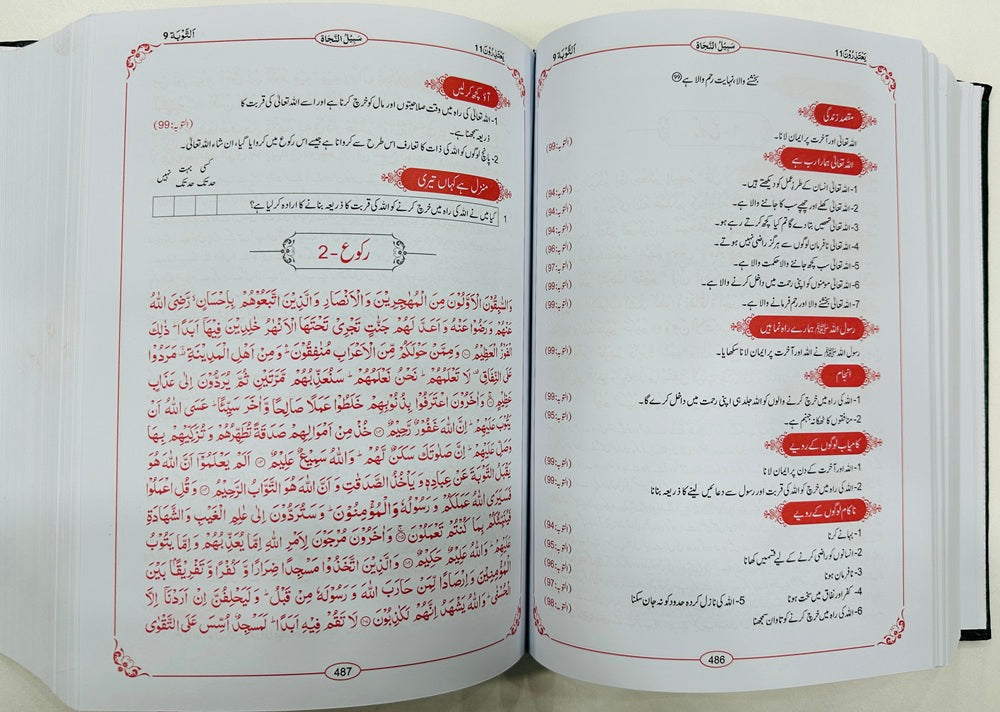 یَعْتَذِرُوْنَ 11
سَبِیْلُ النَّجَاة
اَلتَّوْبَة 9
بخشنے والا نہایت رحم والا ہے ﴿99﴾
مقصد زندگی
اللہ تعالیٰ اور آخرت پر ایمان لانا۔ (التوبہ:99)
اللہ تعالیٰ ہمارا رب ہے
1- اللہ تعالیٰ انسان کے طرز عمل کو دیکھتے ہیں۔ (التوبہ:94)
2- اللہ تعالیٰ کھلے اور چھپے سب کا جاننے والا ہے۔ (التوبہ:94)
3- اللہ تعالیٰ تمہیں بتا دے گا تم کیا کچھ کرتے رہے ہو۔ (التوبہ:94)
4- اللہ تعالیٰ نافرمان لوگوں سے ہرگز راضی نہیں ہوتے۔ (التوبہ:96)
5- اللہ تعالیٰ سب کچھ جاننے والا حکمت والا ہے۔ (التوبہ:97)
6- اللہ تعالیٰ مومنوں کو اپنی رحمت میں داخل کرنے والا ہے۔ (التوبہ:99)
7- اللہ تعالیٰ بخشنے والا اور رحم فرمانے والا ہے۔ (التوبہ:99)
رسول اللہ ﷺ ہمارے راہ نما ہیں
رسول اللہ ﷺ نے اللہ اور آخرت پر ایمان لانا سکھایا۔ (التوبہ:99)
انجام
1- اللہ کی راہ میں خرچ کرنے والوں کو اللہ جلد ہی اپنی رحمت میں داخل کرے گا۔ (التوبہ:99)
2- منافقوں کا ٹھکانہ جہنم ہے۔ (التوبہ:95)
کامیاب لوگوں کے رویے
1- اللہ اور آخرت کے دن پر ایمان لانا (التوبہ:99)
2- اللہ کی راہ میں خرچ کو اللہ کی قربت اور رسول سے دعائیں لینے کا ذریعہ بنانا (التوبہ:99)
ناکام لوگوں کے رویے
1- بہانے کرنا (التوبہ:94)
2- انسانوں کو راضی کرنے کے لیے قسمیں کھانا (التوبہ:95)
3- نافرمان ہونا (التوبہ:96)
4- کفر اور نفاق میں سخت ہونا 5- اللہ کی نازل کردہ حدود کو نہ جان سکنا (التوبہ:97)
6- اللہ کی راہ میں خرچ کرنے کو تاوان سمجھنا (التوبہ:98)
486
یَعْتَذِرُوْنَ 11
سَبِیْلُ النَّجَاة
اَلتَّوْبَة 9
آؤ کچھ کر لیں
1- اللہ تعالیٰ کی راہ میں وقت صلاحیتوں اور مال کو خرچ کرنا ہے اور اسے اللہ تعالیٰ کی قربت کا
ذریعہ سمجھنا ہے۔ (التوبہ:99)
2- پانچ لوگوں کو اللہ کی ذات کا تعارف اس طرح سے کروانا ہے جیسے اس رکوع میں کروایا گیا، ان شاء اللہ تعالیٰ۔
منزل ہے کہاں تیری
کسی حد تک بہت حد تک نہیں
1 کیا میں نے اللہ کی راہ میں خرچ کرنے کو اللہ کی قربت کا ذریعہ بنانے کا ارادہ کر لیا ہے؟
رکوع - 2
وَالسّٰبِقُوْنَ الْاَوَّلُوْنَ مِنَ الْمُهٰجِرِیْنَ وَالْاَنْصَارِ وَالَّذِیْنَ اتَّبَعُوْهُمْ بِاِحْسَانٍ ۙ رَّضِیَ اللّٰهُ
عَنْهُمْ وَرَضُوْا عَنْهُ وَاَعَدَّ لَهُمْ جَنّٰتٍ تَجْرِیْ تَحْتَهَا الْاَنْهٰرُ خٰلِدِیْنَ فِیْهَاۤ اَبَدًا ؕ ذٰلِكَ
الْفَوْزُ الْعَظِیْمُ ۝ وَمِمَّنْ حَوْلَكُمْ مِّنَ الْاَعْرَابِ مُنٰفِقُوْنَ ۛؕ وَمِنْ اَهْلِ الْمَدِیْنَةِ ۛؔ مَرَدُوْا
عَلَی النِّفَاقِ ۟ لَا تَعْلَمُهُمْ ؕ نَحْنُ نَعْلَمُهُمْ ؕ سَنُعَذِّبُهُمْ مَّرَّتَیْنِ ثُمَّ یُرَدُّوْنَ اِلٰی عَذَابٍ
عَظِیْمٍ ۝ وَاٰخَرُوْنَ اعْتَرَفُوْا بِذُنُوْبِهِمْ خَلَطُوْا عَمَلًا صَالِحًا وَّاٰخَرَ سَیِّئًا ؕ عَسَی اللّٰهُ اَنْ
یَّتُوْبَ عَلَیْهِمْ ؕ اِنَّ اللّٰهَ غَفُوْرٌ رَّحِیْمٌ ۝ خُذْ مِنْ اَمْوَالِهِمْ صَدَقَةً تُطَهِّرُهُمْ وَتُزَكِّیْهِمْ بِهَا
وَصَلِّ عَلَیْهِمْ ؕ اِنَّ صَلٰوتَكَ سَكَنٌ لَّهُمْ ؕ وَاللّٰهُ سَمِیْعٌ عَلِیْمٌ ۝ اَلَمْ یَعْلَمُوْۤا اَنَّ اللّٰهَ هُوَ
یَقْبَلُ التَّوْبَةَ عَنْ عِبَادِهٖ وَیَاْخُذُ الصَّدَقٰتِ وَاَنَّ اللّٰهَ هُوَ التَّوَّابُ الرَّحِیْمُ ۝ وَقُلِ اعْمَلُوْا
فَسَیَرَی اللّٰهُ عَمَلَكُمْ وَرَسُوْلُهٗ وَالْمُؤْمِنُوْنَ ؕ وَسَتُرَدُّوْنَ اِلٰی عٰلِمِ الْغَیْبِ وَالشَّهَادَةِ
فَیُنَبِّئُكُمْ بِمَا كُنْتُمْ تَعْمَلُوْنَ ۝ وَاٰخَرُوْنَ مُرْجَوْنَ لِاَمْرِ اللّٰهِ اِمَّا یُعَذِّبُهُمْ وَاِمَّا یَتُوْبُ
عَلَیْهِمْ ؕ وَاللّٰهُ عَلِیْمٌ حَكِیْمٌ ۝ وَالَّذِیْنَ اتَّخَذُوْا مَسْجِدًا ضِرَارًا وَّكُفْرًا وَّتَفْرِیْقًۢا بَیْنَ
الْمُؤْمِنِیْنَ وَاِرْصَادًا لِّمَنْ حَارَبَ اللّٰهَ وَرَسُوْلَهٗ مِنْ قَبْلُ ؕ وَلَیَحْلِفُنَّ اِنْ اَرَدْنَاۤ اِلَّا
الْحُسْنٰی ؕ وَاللّٰهُ یَشْهَدُ اِنَّهُمْ لَكٰذِبُوْنَ ۝ لَا تَقُمْ فِیْهِ اَبَدًا ؕ لَمَسْجِدٌ اُسِّسَ عَلَی التَّقْوٰی
487